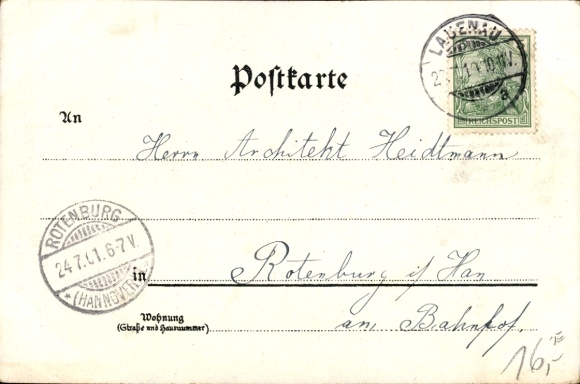 LAUENAU
REICHSPOST
Postkarte
An
Herrn Architekt Heidtmann
ROTENBURG
24.7.01.6-7V.
*(HANNOVER)
in
Rotenburg i/ Han
Wohnung
(Straße und Hausnummer)
am Bahnhof.
16,-